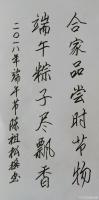 合家品尝时节物
端午粽子尽飘香
二〇一八年端午节陈祖松撰书